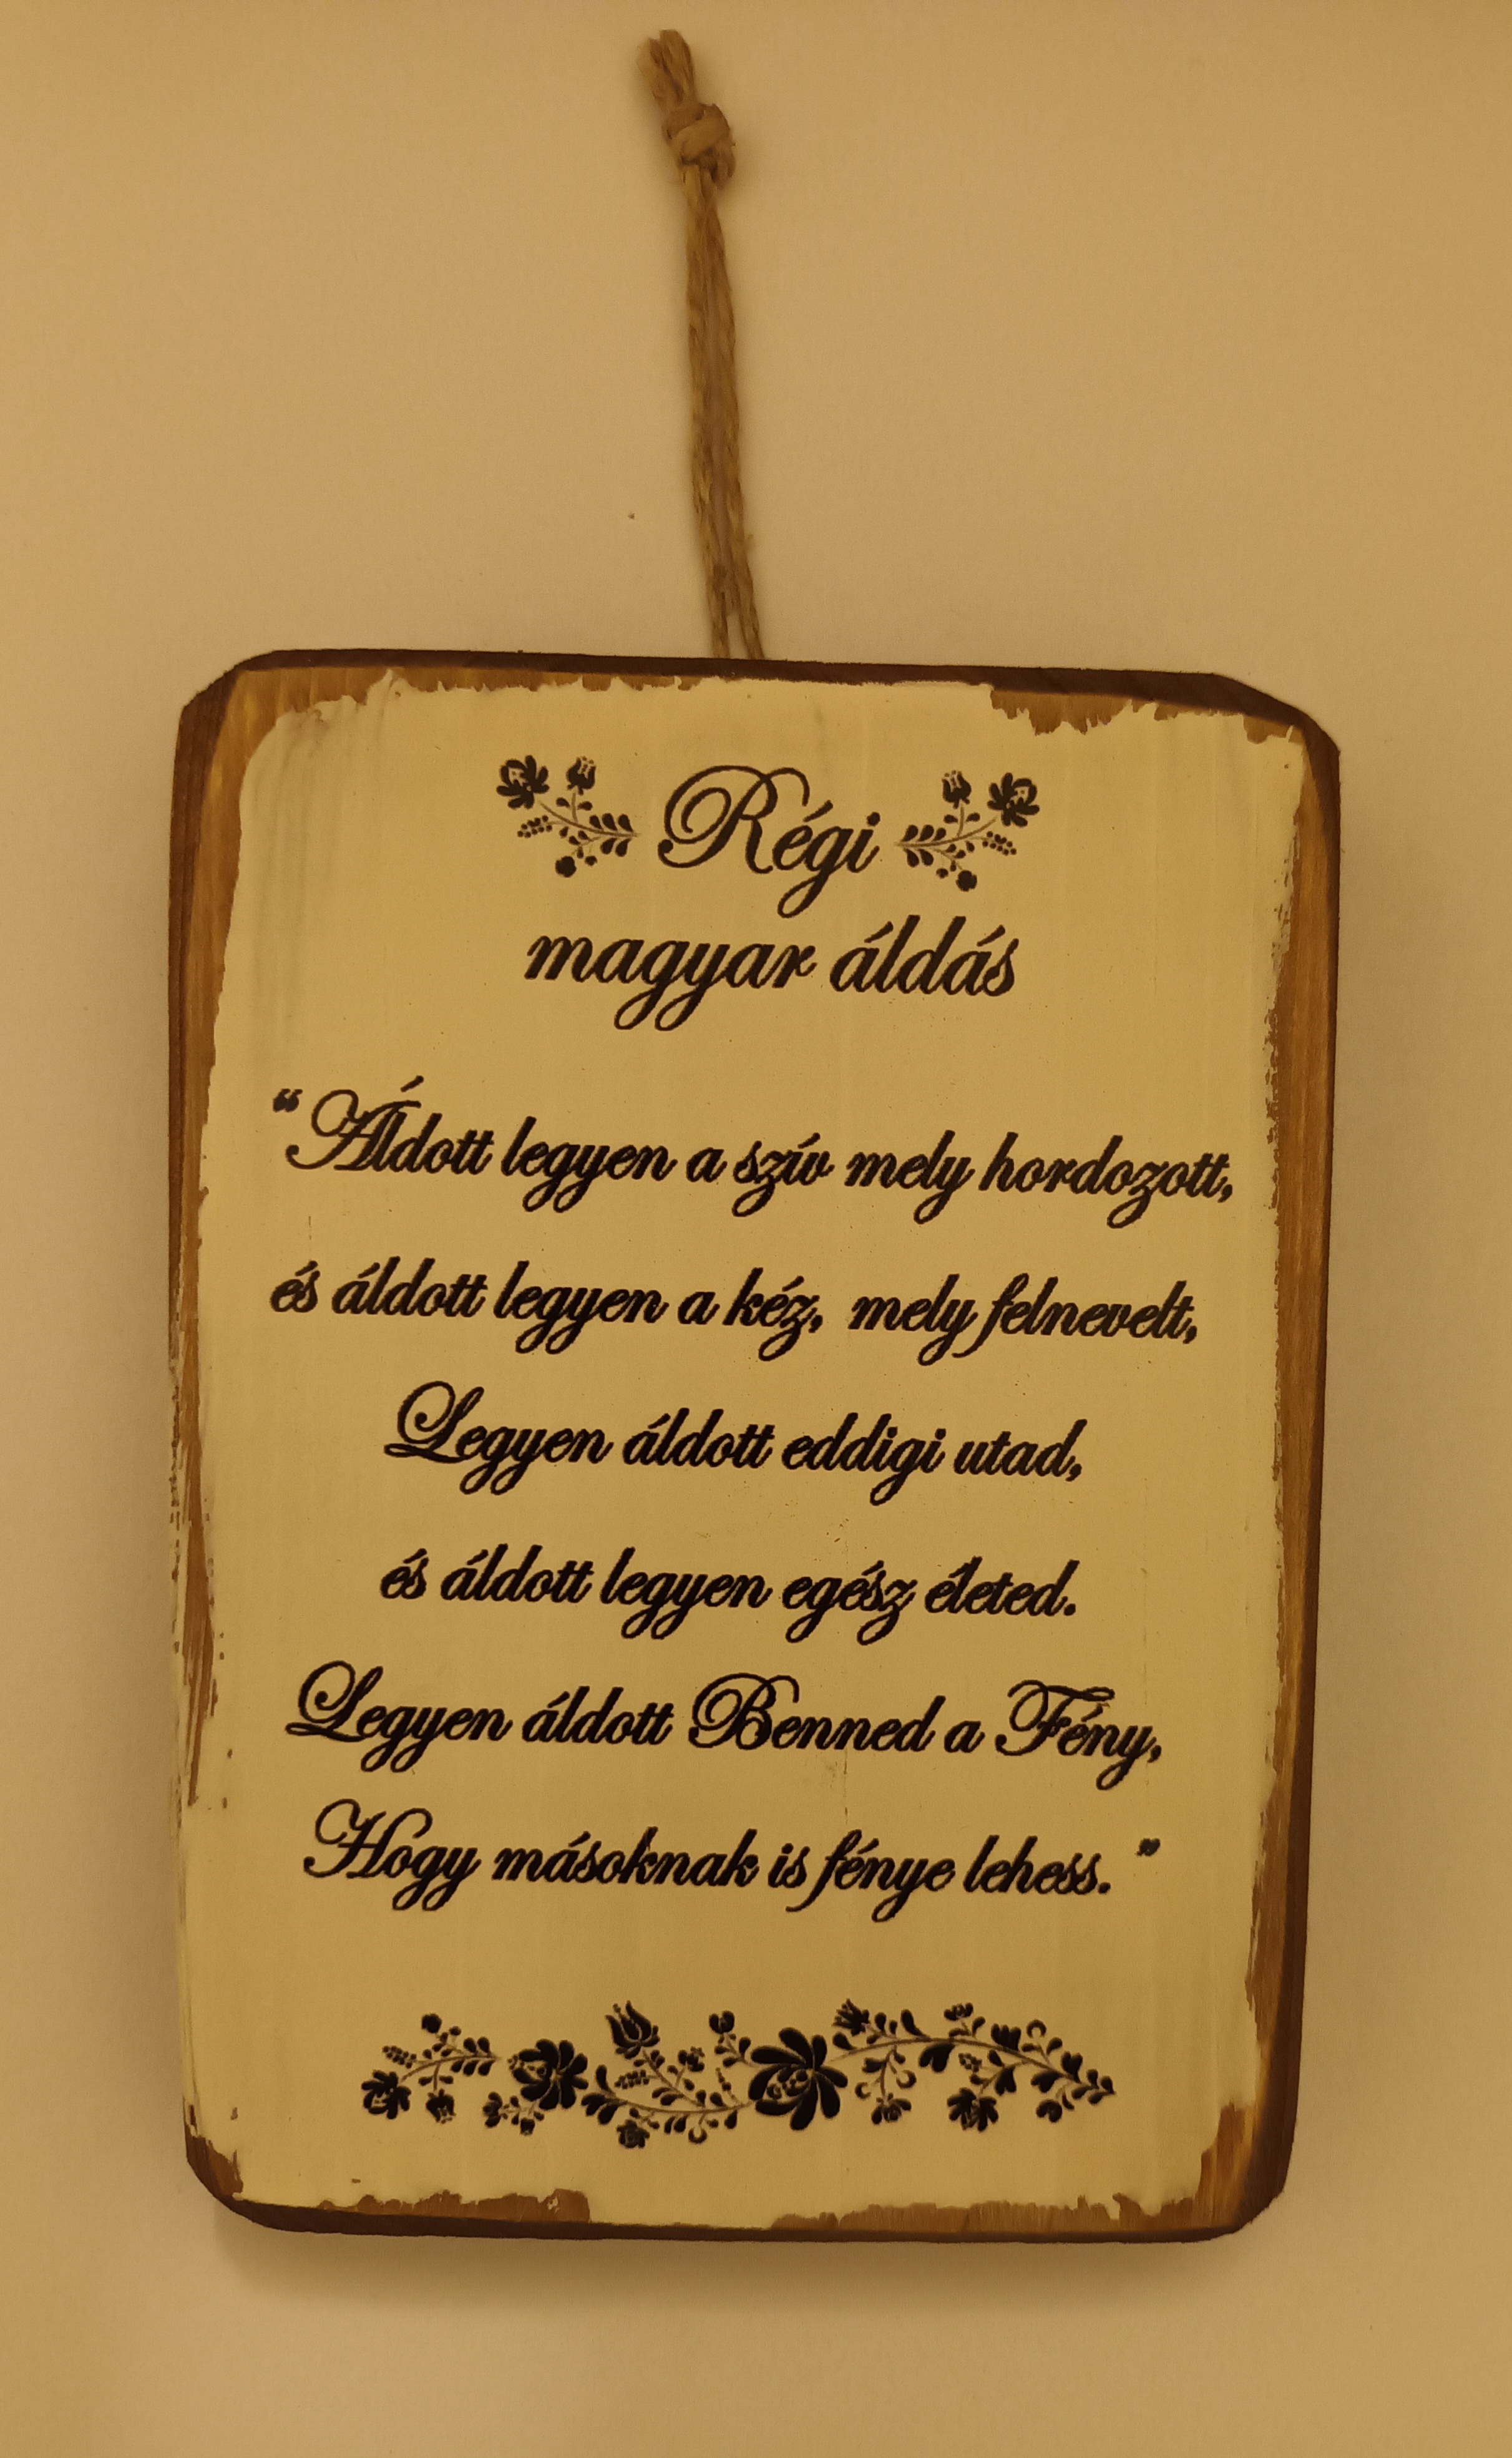 Régi
magyar áldás
“Áldott legyen a szív mely hordozott,
és áldott legyen a kéz, mely felnevelt,
Legyen áldott eddigi utad,
és áldott legyen egész életed.
Legyen áldott Benned a Fény,
Hogy másoknak is fénye lehess.”